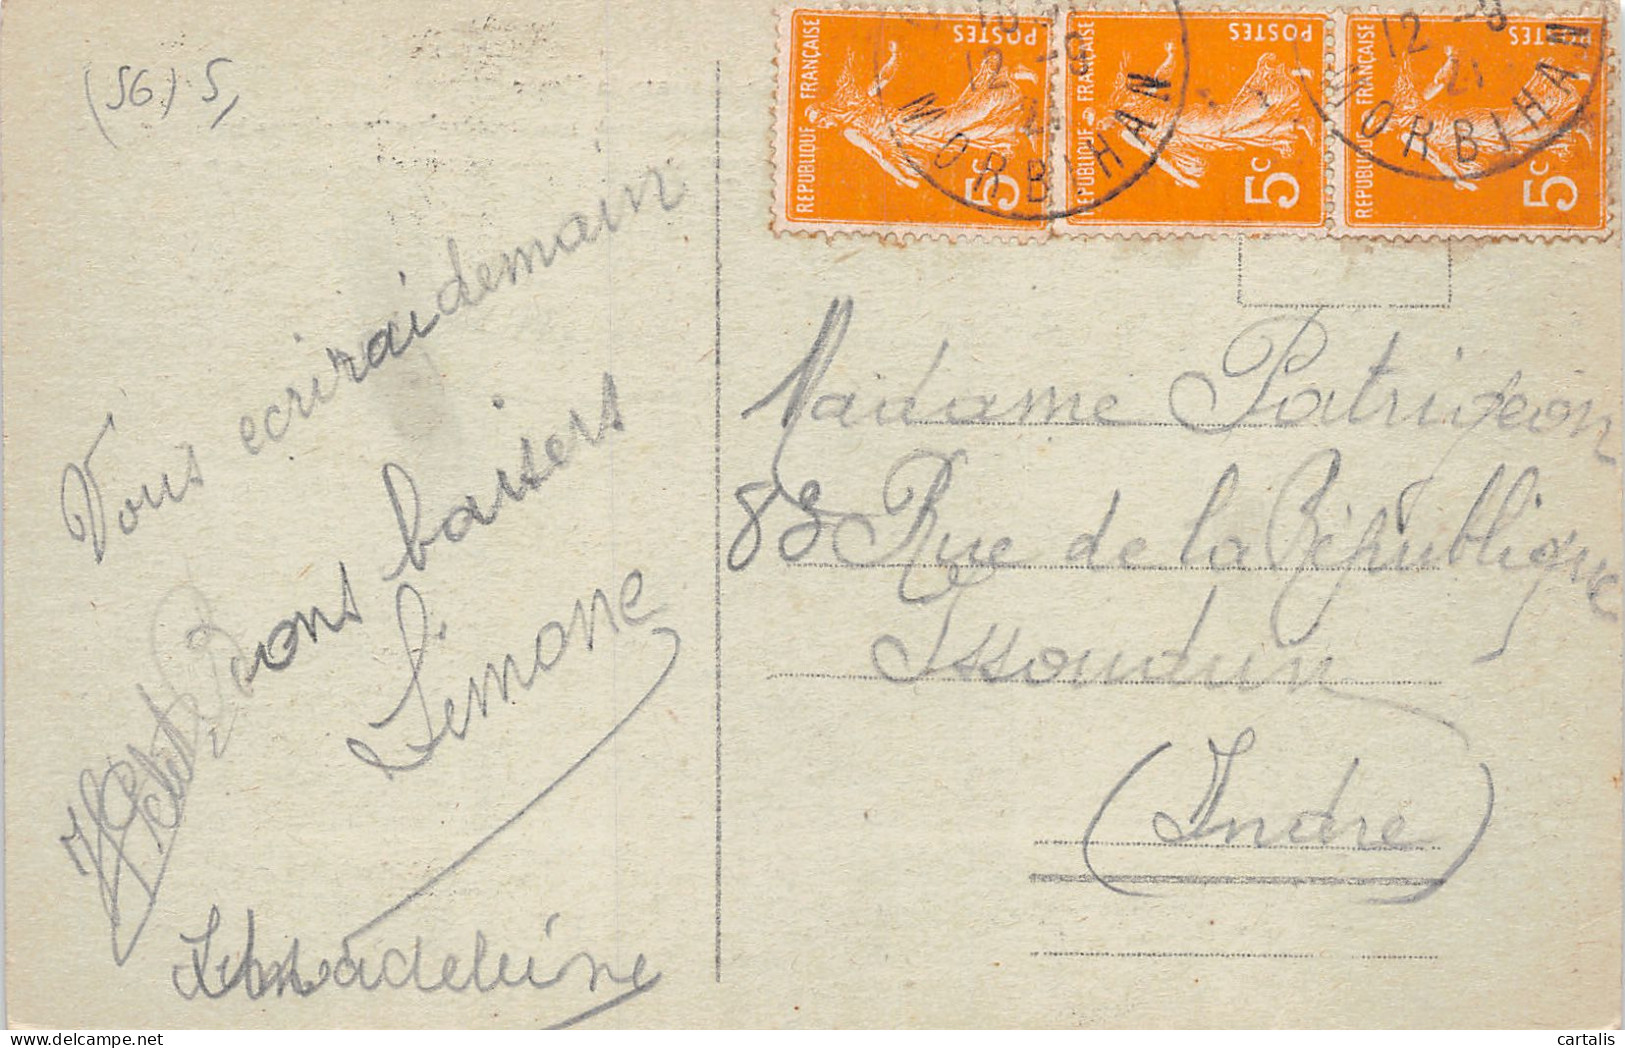 (56) 5
Vous ecrirai demain
Bons baisers
Simone
Madeleine
REPUBLIQUE FRANÇAISE
POSTES
5c
REPUBLIQUE FRANÇAISE
POSTES
5c
REPUBLIQUE FRANÇAISE
POSTES
5c
12 -9
21
MORBIHAN
12 -9
21
MORBIHAN
Madame Patrigeon
83 Rue de la République
Issoudun
(Indre)
cartalis